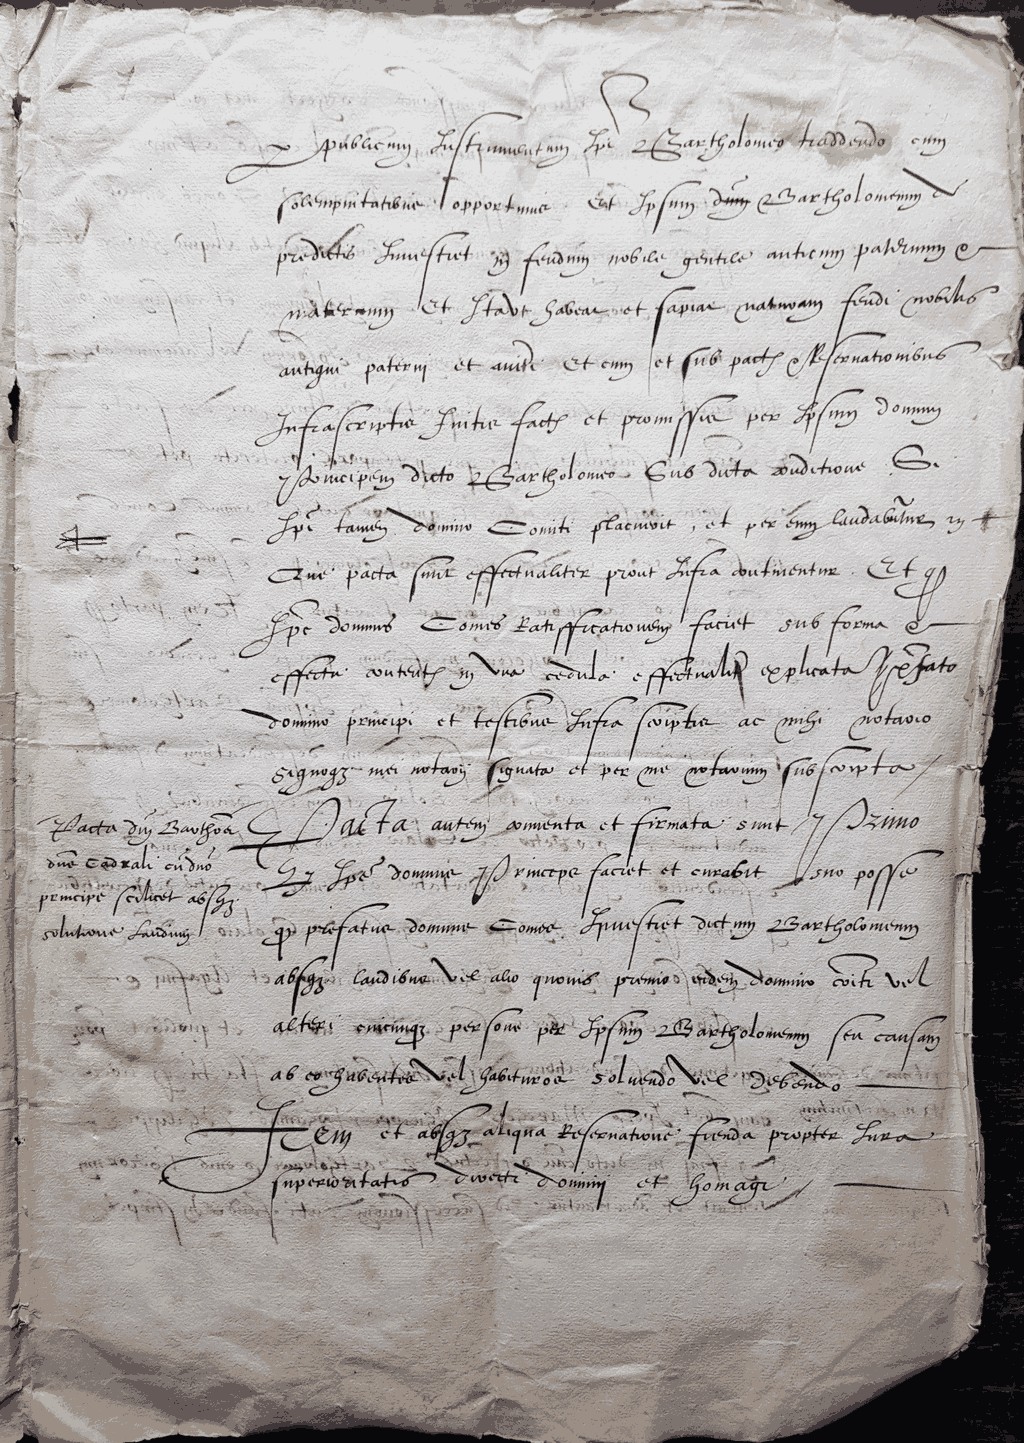 publicum Instrumentum Ipi Bartholomeo traddendo cum
solempnitatibus opportunis Et Ipsum dnum Bartholomeum de
predictis Investiet in feudum nobile gentile anticum paternum &
maternum Et Itaut habeat et sapiat naturam feudi nobilis
antiqui paterni et aviti Et cum et sub pactis & Reservationibus
Infrascriptis Initis factis et promissis per Ipsum dominum
principem dicto Bartholomeo Sub dicta conditione Si
Ipi tamen domino Comiti placuerit, et per eum laudabuntur
Que pacta sunt effectualiter prout Infra continentur. Et q
Ipe dominus Comes Ratifficationem faciet sub forma &
effectu contentis in una cedula effectualiter explicata prefato
domino principi et testibus Infra scriptis ac mihi notario
signoq mei notarii signata et per me notarium subscripta
Pacta dni Barthoei
de Cedrali cu dno
principe scilicet absq
solutione laudium
Pacta autem conventa et firmata sunt Primo
Q Ipse dominus Princeps faciet et curabit suo posse
q prefatus dominus Comes Investiet dictum Bartholomeum
absq laudibus vel alio quovis premio eidem domino coiti vel
alteri cuicunq persone per Ipsum Bartholomeum seu causam
ab eo habentes vel habituros solvendo vel debendo
Item et absq aliqua Reservatione fienda propter Iura
superioritatis directi dominii et homagii